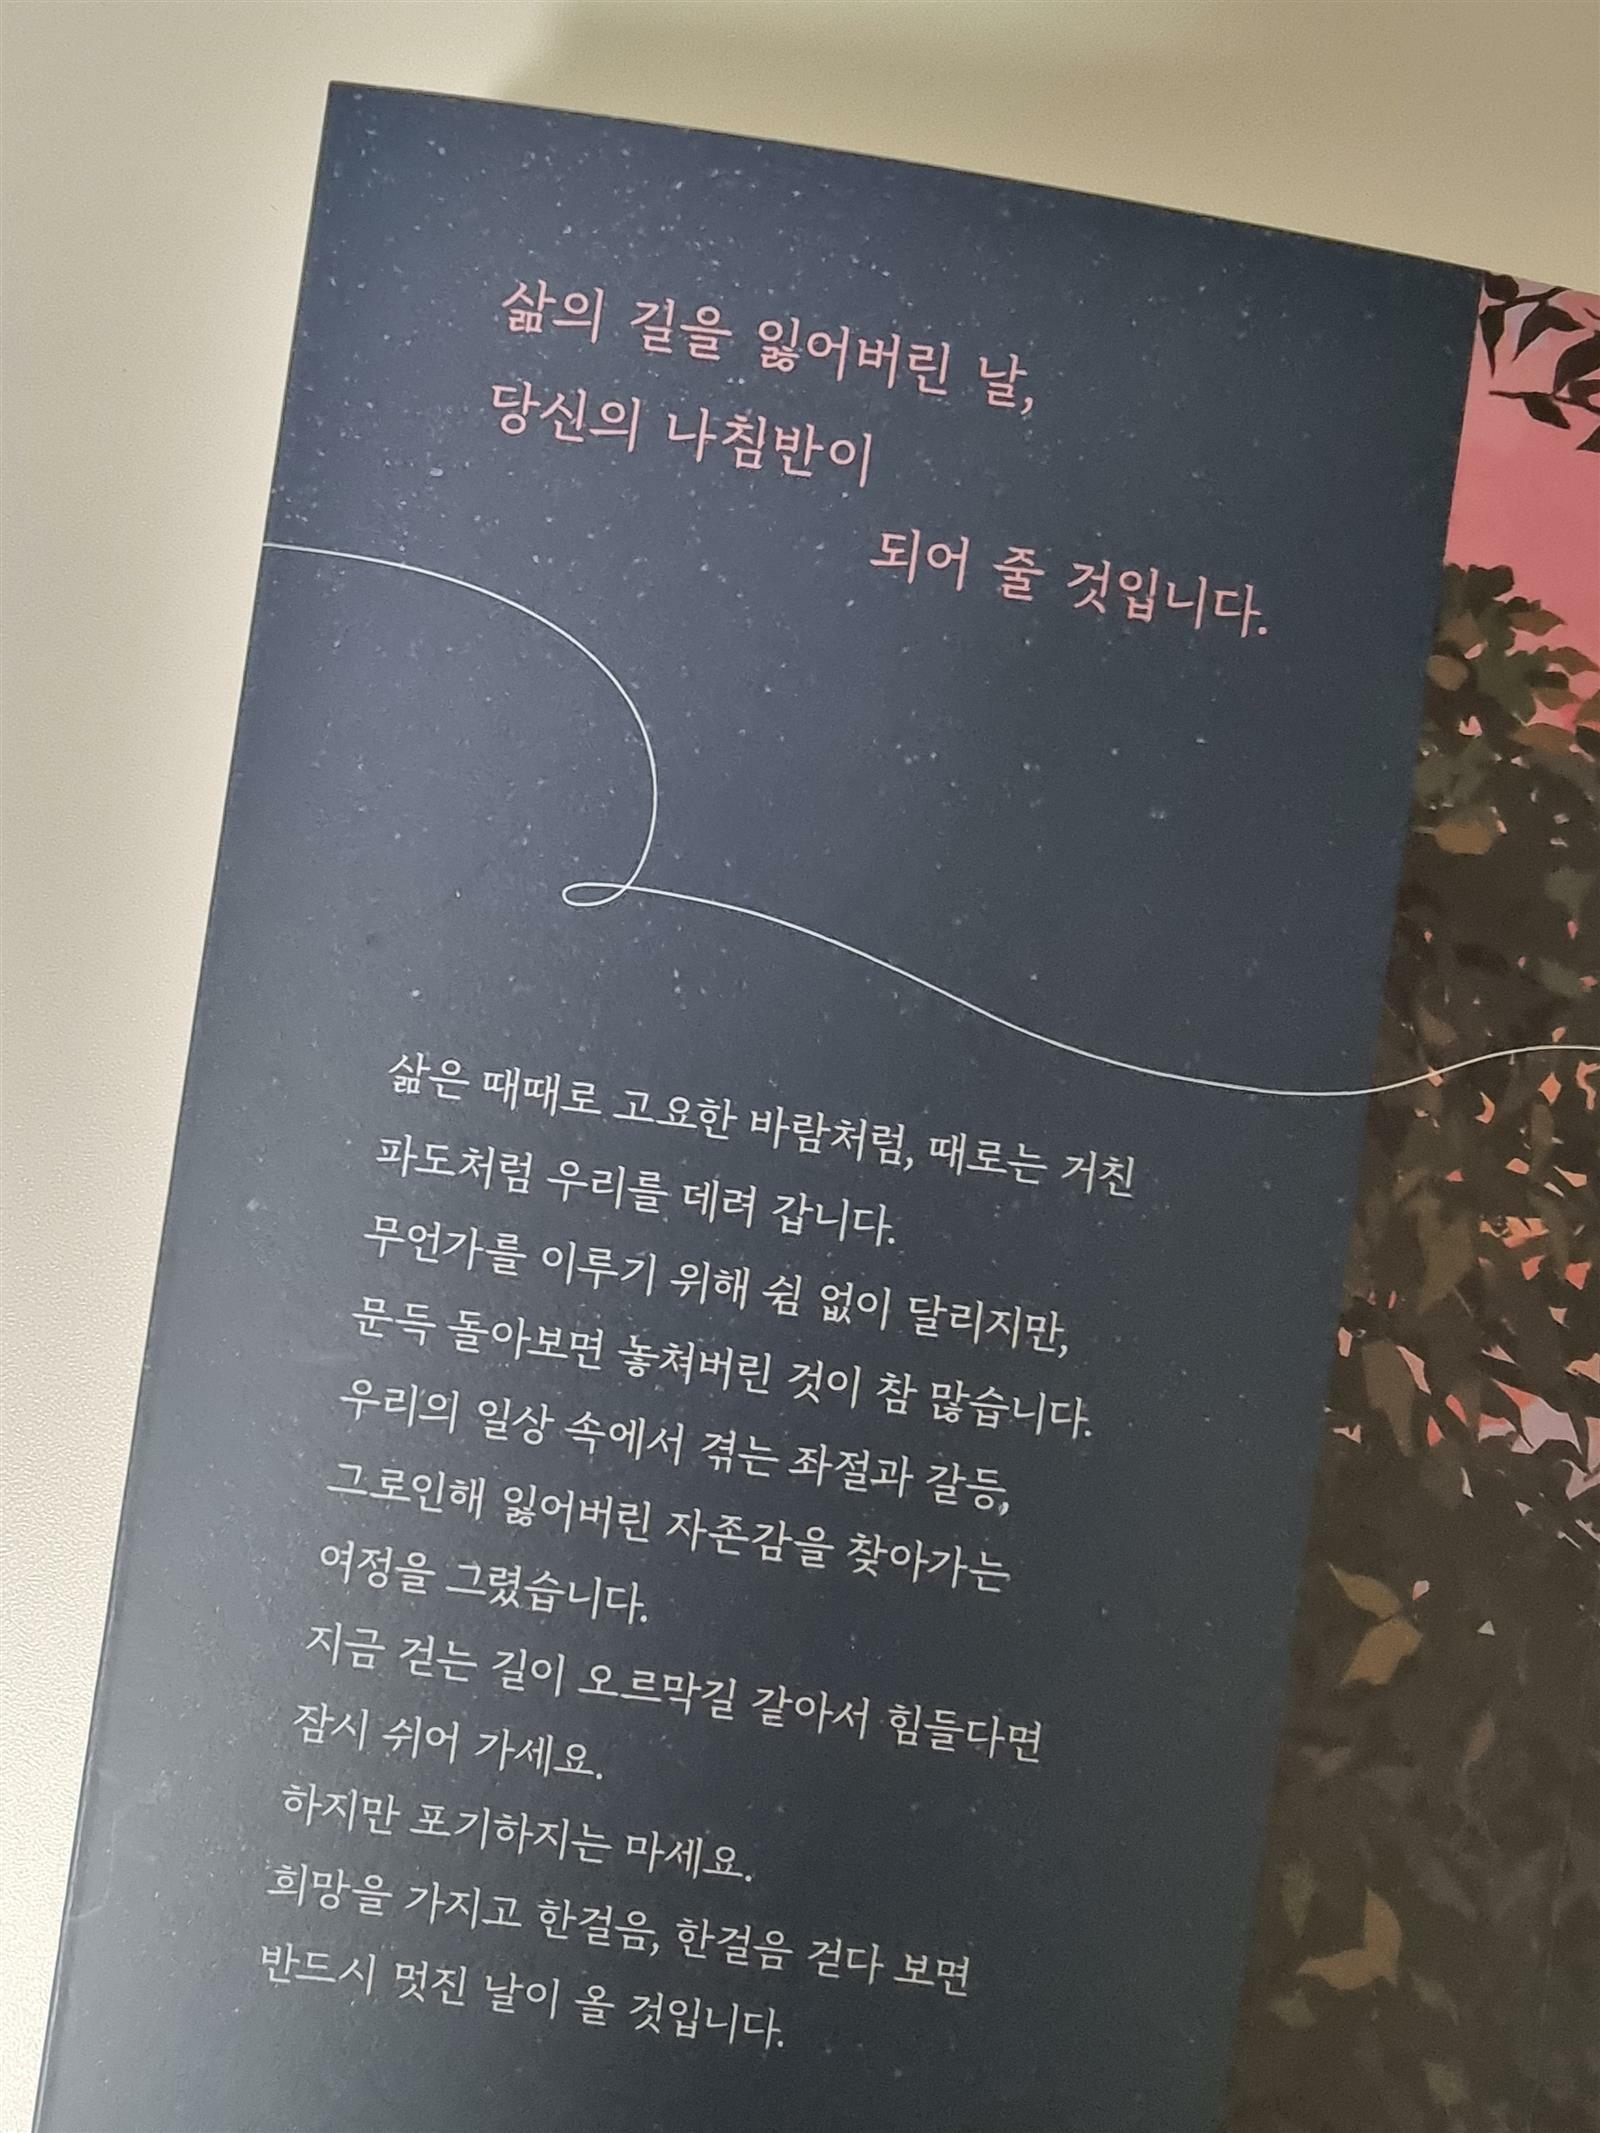 삶의 길을 잃어버린 날,
당신의 나침반이
되어 줄 것입니다.
삶은 때때로 고요한 바람처럼, 때로는 거친
파도처럼 우리를 데려 갑니다.
무언가를 이루기 위해 쉼 없이 달리지만,
문득 돌아보면 놓쳐버린 것이 참 많습니다.
우리의 일상 속에서 겪는 좌절과 갈등,
그로인해 잃어버린 자존감을 찾아가는
여정을 그렸습니다.
지금 걷는 길이 오르막길 같아서 힘들다면
잠시 쉬어 가세요.
하지만 포기하지는 마세요.
희망을 가지고 한걸음, 한걸음 걷다 보면
반드시 멋진 날이 올 것입니다.